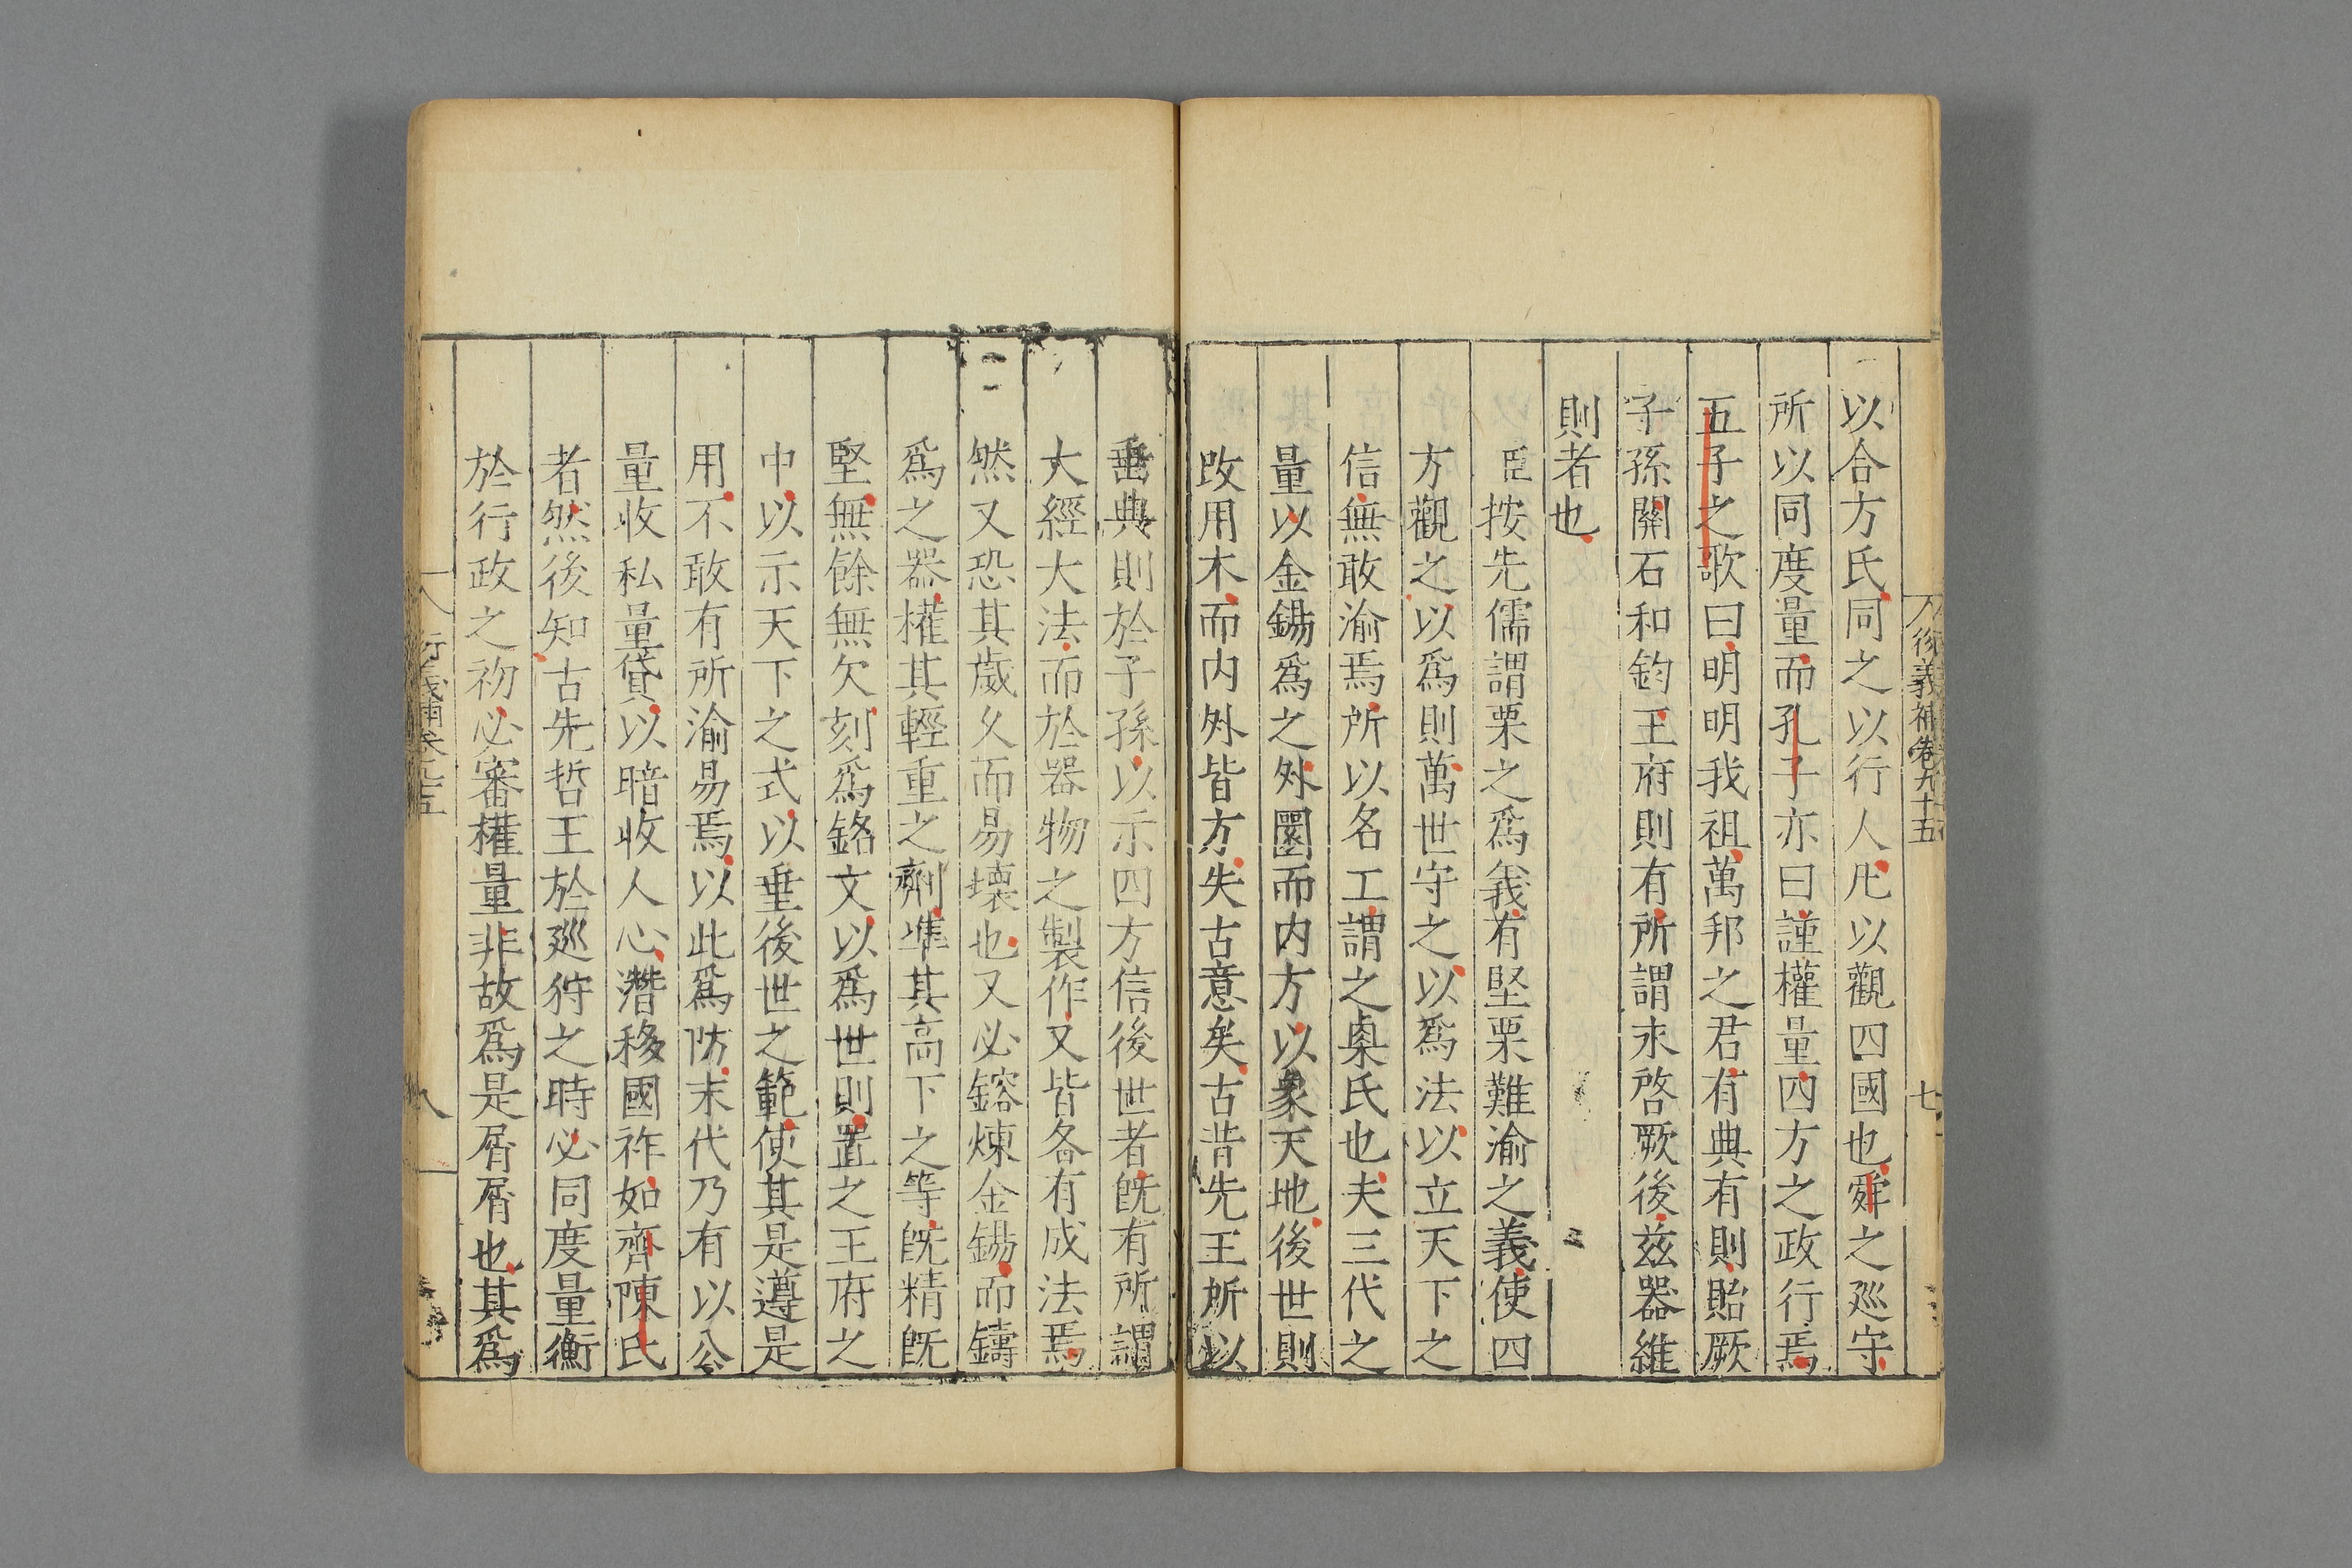 後義補卷九十五
七
以合方氏同之以行人凡以觀四國也舜之廵守
所以同度量而孔子亦曰謹權量四方之政行焉
五子之歌曰明明我祖萬邦之君有典有則貽厥
子孫關石和鈞王府則有所謂永啓厥後兹器維
則者也
臣按先儒謂栗之爲義有堅栗難渝之義使四
方觀之以爲則萬世守之以爲法以立天下之
信無敢渝焉所以名工謂之㮚氏也夫三代之
量以金錫爲之外圜而内方以象天地後世則
改用木而内外皆方失古意矣古昔先王所以
垂典則於子孫以示四方信後世者旣有所謂
大經大法而於器物之製作又皆各有成法焉
然又恐其歲久而易壊也又必鎔煉金錫而鑄
爲之器權其輕重之劑凖其高下之等旣精旣
堅無餘無欠刻爲銘文以爲世則置之王府之
中以示天下之式以垂後世之範使其是遵是
用不敢有所渝易焉以此爲防末代乃有以公
量收私量貸以暗收人心潛移國祚如齊陳氏
者然後知古先哲王於廵狩之時必同度量衡
於行政之初必審權量非故爲是屑屑也其爲
八